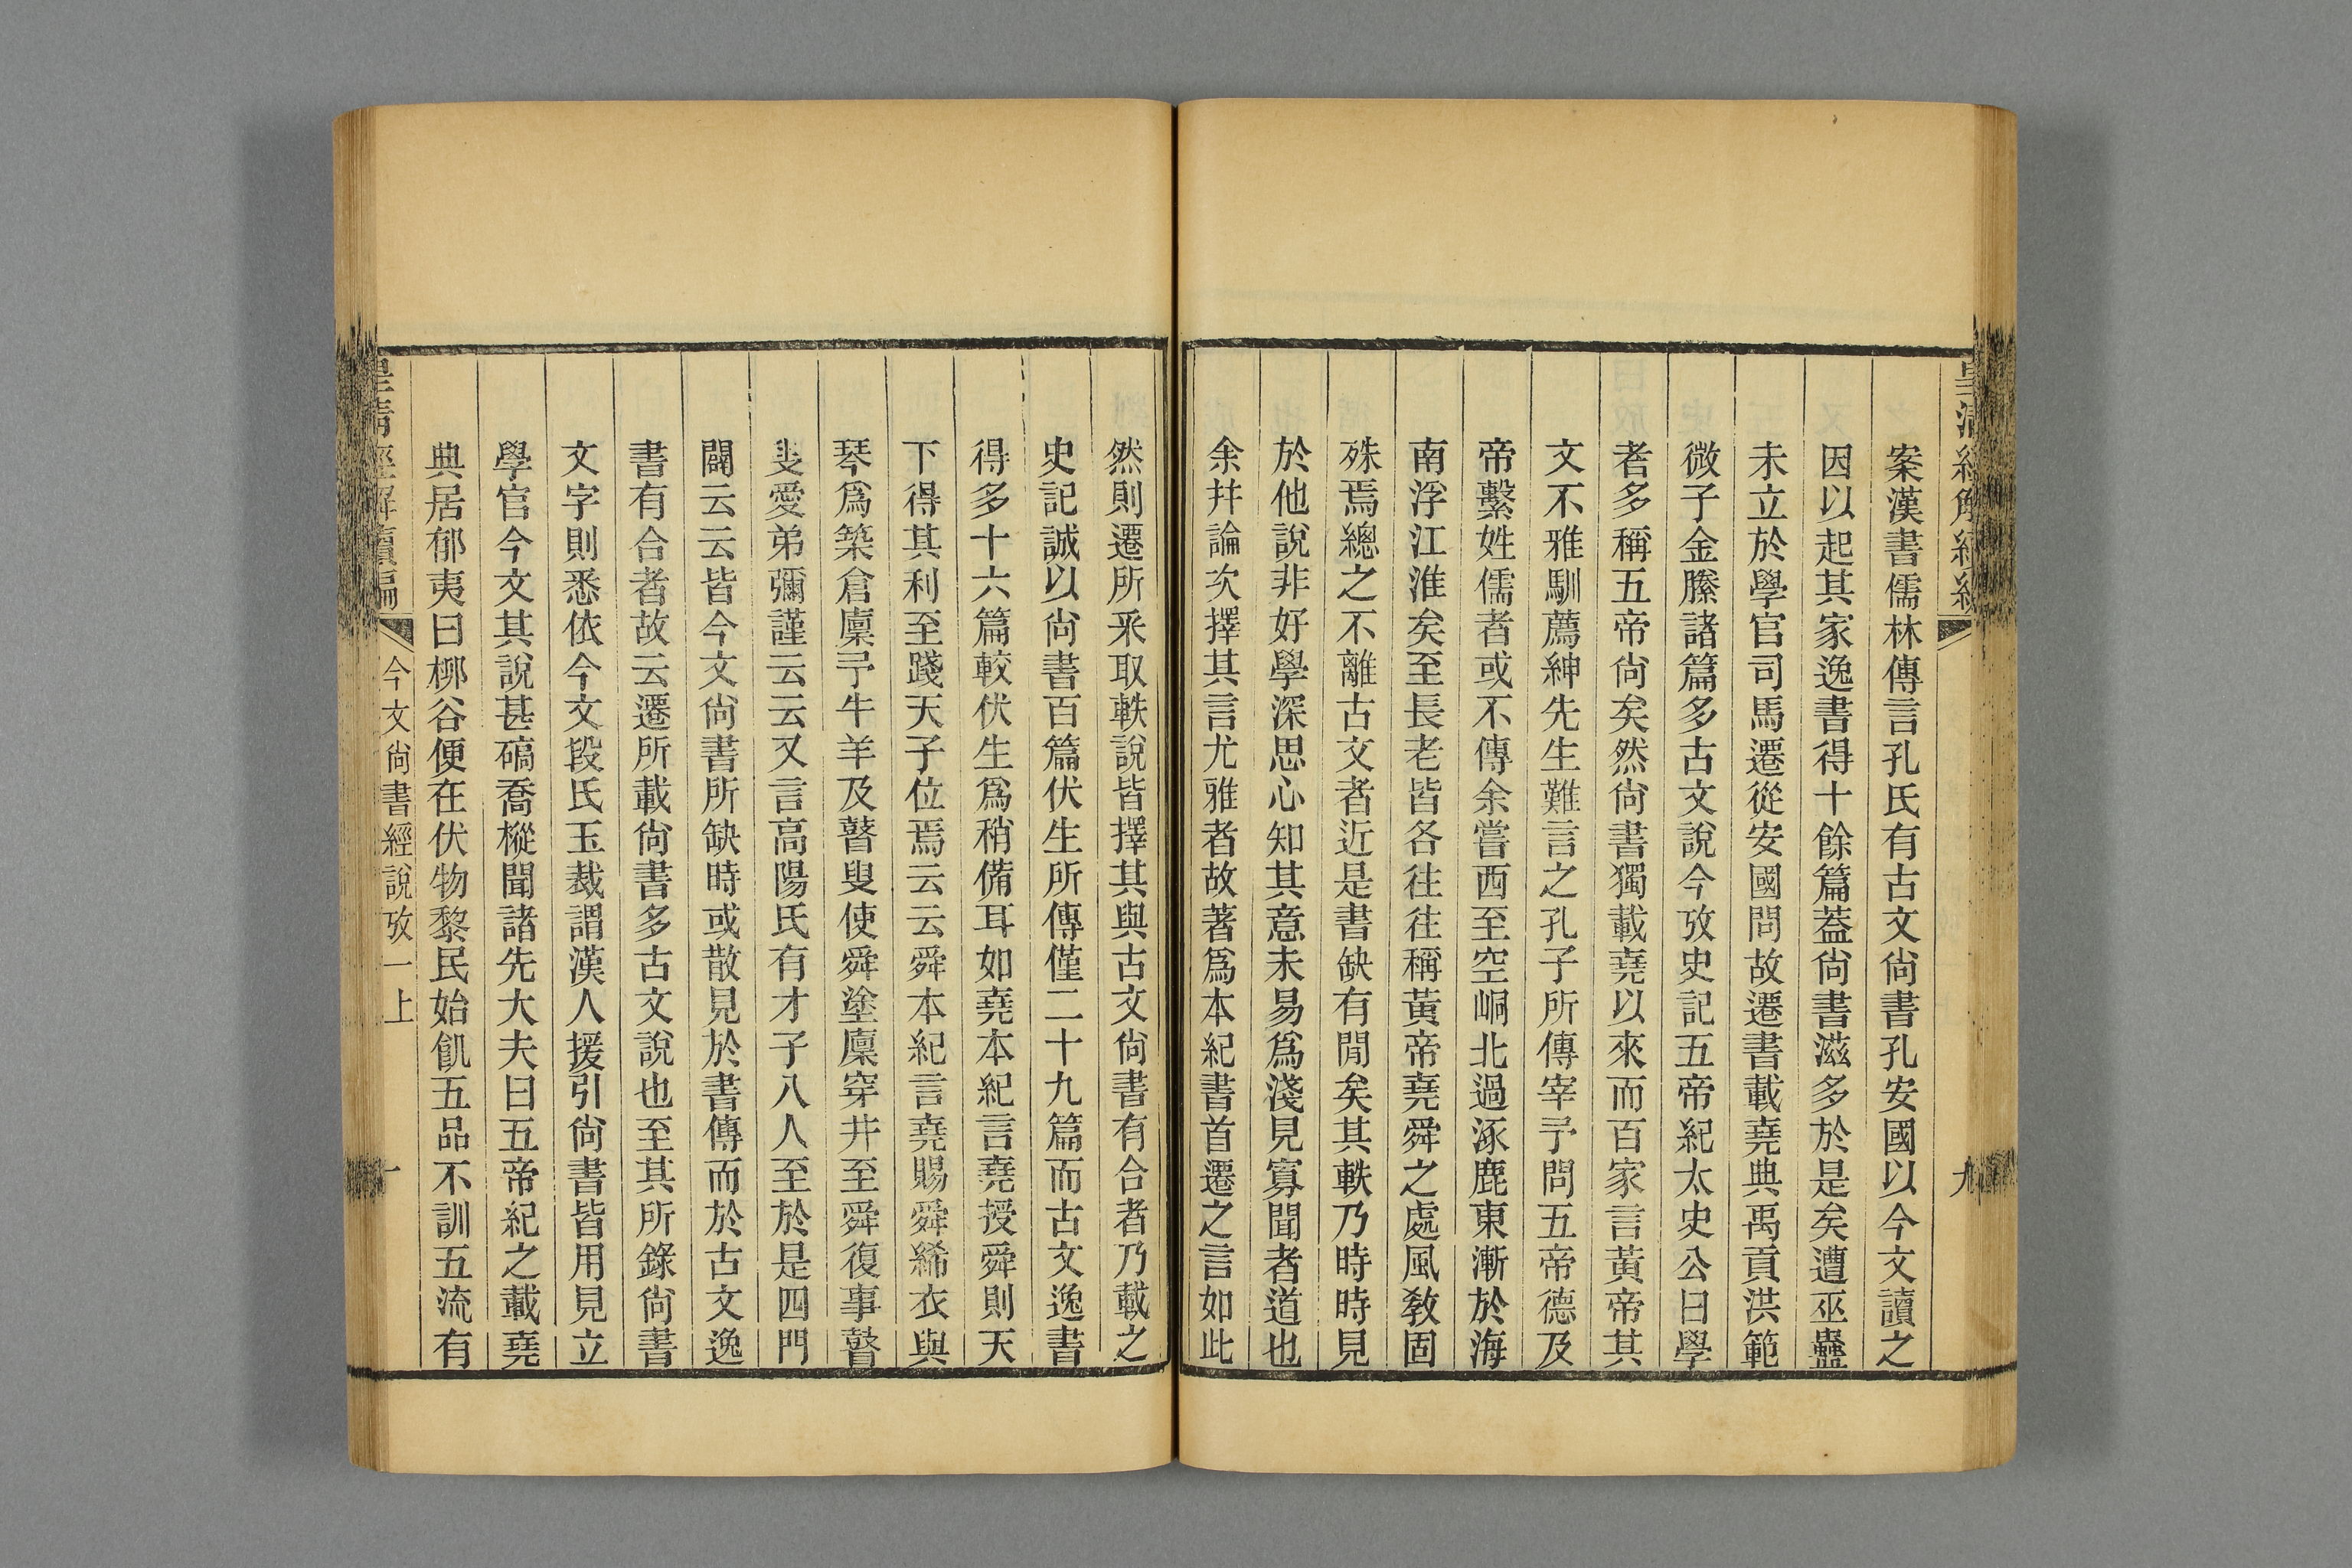 皇清經解續編
九
案漢書儒林傳言孔氏有古文尙書孔安國以今文讀之
因以起其家逸書得十餘篇蓋尙書滋多於是矣遭巫蠱
未立於學官司馬遷從安國問故遷書載堯典禹貢洪範
微子金縢諸篇多古文說今攷史記五帝紀太史公曰學
者多稱五帝尙矣然尙書獨載堯以來而百家言黃帝其
文不雅馴薦紳先生難言之孔子所傳宰予問五帝德及
帝繫姓儒者或不傳余嘗西至空峒北過涿鹿東漸於海
南浮江淮矣至長老皆各往往稱黃帝堯舜之處風敎固
殊焉總之不離古文者近是書缺有閒矣其軼乃時時見
於他說非好學深思心知其意未易爲淺見寡聞者道也
余幷論次擇其言尤雅者故著爲本紀書首遷之言如此
然則遷所釆取軼說皆擇其與古文尙書有合者乃載之
史記誠以尙書百篇伏生所傳僅二十九篇而古文逸書
得多十六篇較伏生爲稍備耳如堯本紀言堯授舜則天
下得其利至踐天子位焉云云舜本紀言堯賜舜絺衣與
琴爲築倉廩予牛羊及瞽叟使舜塗廩穿井至舜復事瞽
叟愛弟彌謹云云又言高陽氏有才子八人至於是四門
闢云云皆今文尙書所缺時或散見於書傳而於古文逸
書有合者故云遷所載尙書多古文說也至其所錄尙書
文字則悉依今文段氏玉裁謂漢人援引尙書皆用見立
學官今文其說甚碻喬樅聞諸先大夫曰五帝紀之載堯
典居郁夷曰桺谷便在伏物黎民始飢五品不訓五流有
皇清經解續編
今文尙書經說攷一上
十